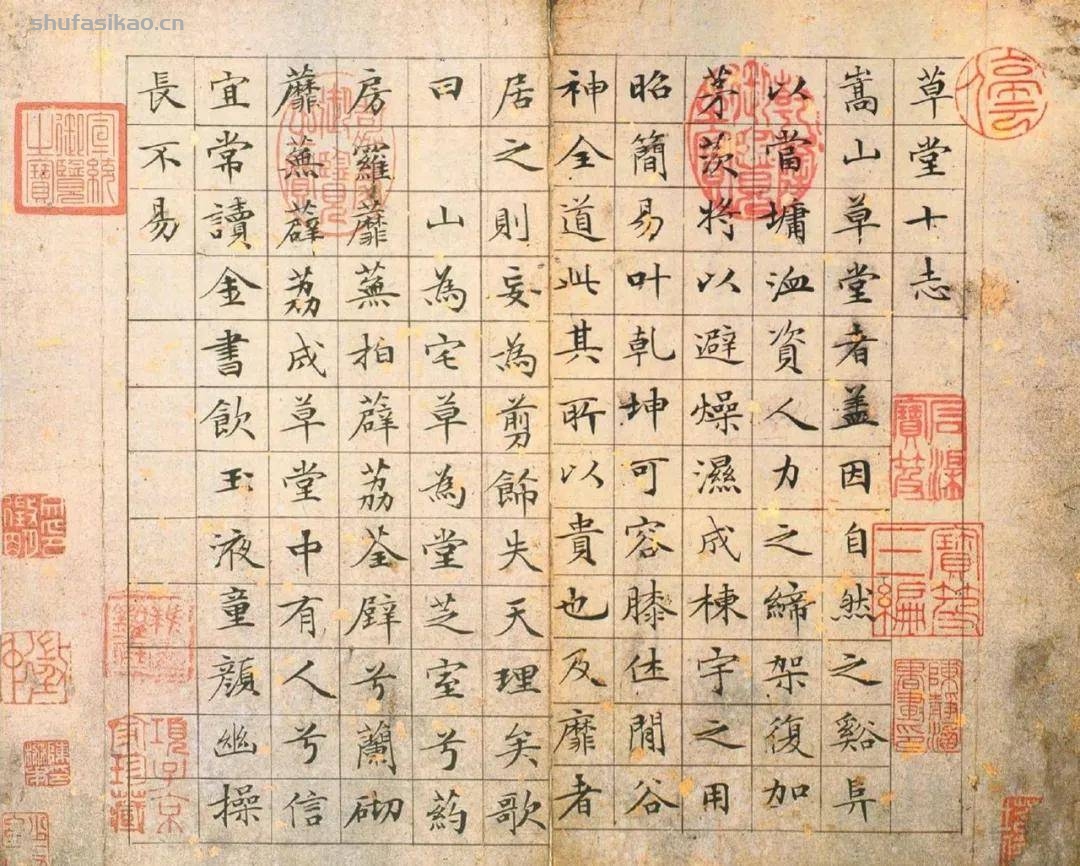 shufasikao.cn
草堂十志
嵩山草堂者盖因自然之谿阜
以當墉洫資人力之締架復加
茅茨將以避燥濕成棟宇之用
昭簡易叶乾坤可容膝休閒谷
神全道此其所以貴也及靡者
居之則妄為剪飾失天理矣歌
曰山為宅草為堂芝室兮葯
房羅蘼蕪拍薜荔荃壁兮蘭砌
蘼蕪薜荔成草堂中有人兮信
宜常讀金書飲玉液童顏幽操
長不易
宣統御覽之寶
項子京家珍藏